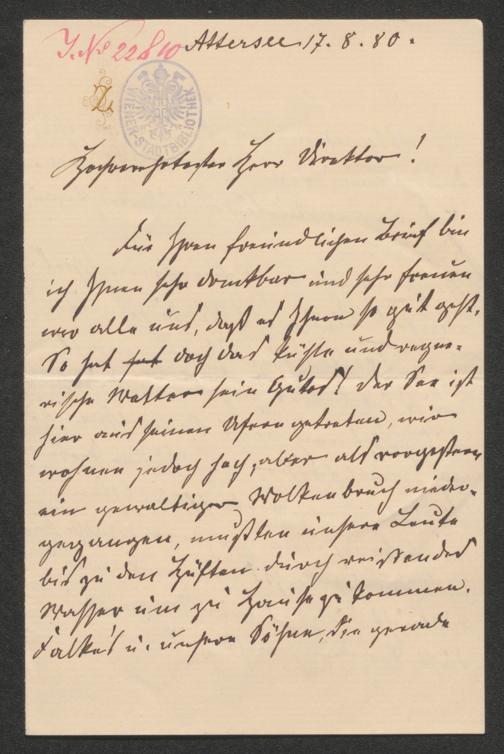 J. No 22810
Attersee 17. 8. 80.
Z
WIENER-STADTBIBLIOTHEK
Hochverehrtester Herr Direktor!
Für Ihren freundlichen Brief bin
ich Ihnen sehr dankbar und sehr freuen
wir alle uns, daß es Ihnen so gut geht.
So hat hat doch das kühle und regne-
rische Wetter sein Gutes! Der See ist
hier aus seinen Ufern getreten, wir
wohnen jedoch hoch, aber als vorgestern
ein gewaltiger Wolkenbruch nieder-
gegangen, mußten unsere Leute
bis zu den Hüften durch reißendes
Wasser um zu Hause zu kommen.
Falke's u. unsere Söhne, die gerade